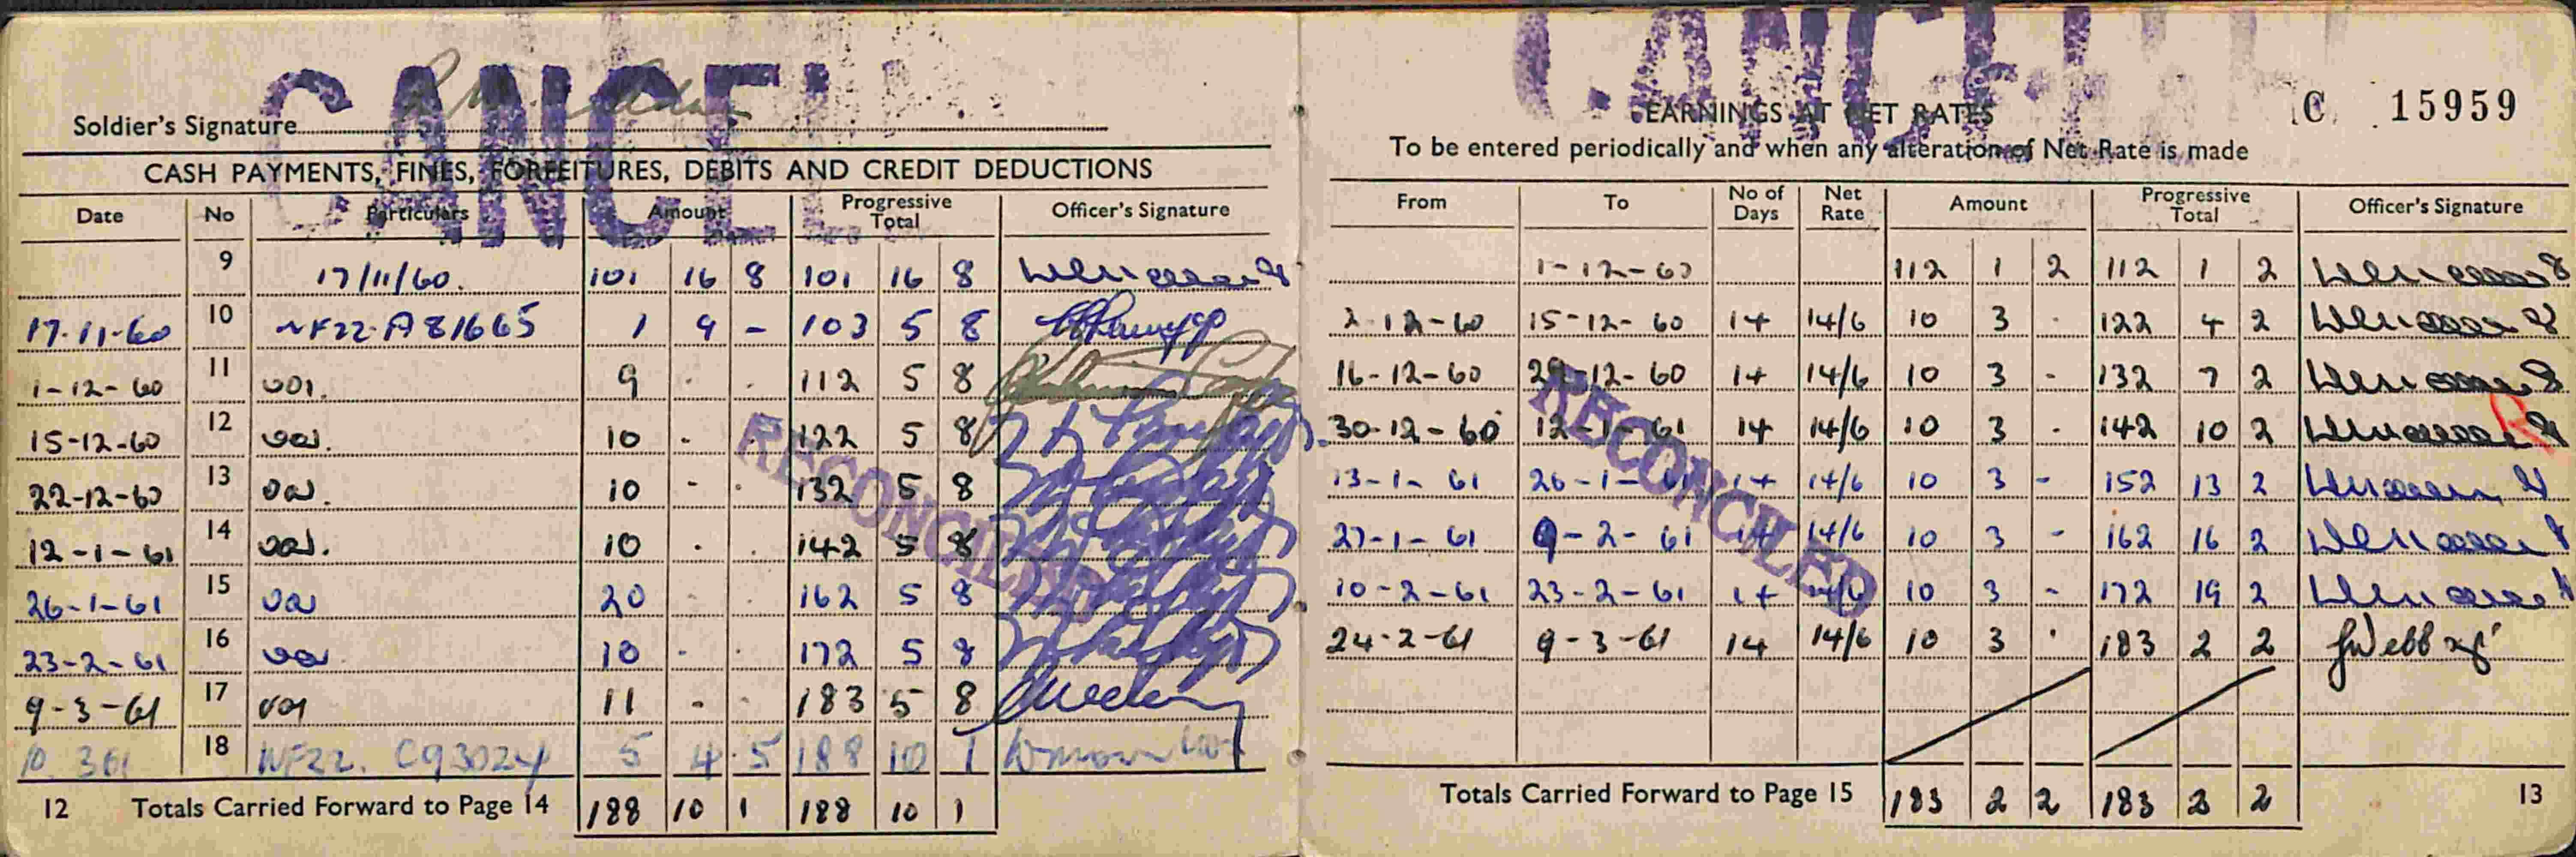 CANCEL
Soldier's Signature
CASH PAYMENTS, FINES, FORFEITURES, DEBITS AND CREDIT DEDUCTIONS
Date No Particulars Amount Progressive Total Officer's Signature
9 17/11/60. 101 16 8 101 16 8
17-11-60 10 NF22 A 81665 1 9 - 103 5 8
1-12-60 11 9 . . 112 5 8
15-12-60 12 10 - . 122 5 8
22-12-60 13 10 - . 132 5 8
12-1-61 14 10 . . 142 5 8
26-1-61 15 20 . . 162 5 8
23-2-61 16 10 . . 172 5 8
9-3-61 17 11 - . 183 5 8
10.3 61 18 NF22. C93024 5 4 5 188 10 1
RECONCILED
12 Totals Carried Forward to Page 14 188 10 1 188 10 1
CANCEL
C 15959
EARNINGS AT NET RATES
To be entered periodically and when any alteration of Net Rate is made
From To No of Days Net Rate Amount Progressive Total Officer's Signature
1-12-60 112 1 2 112 1 2
2-12-60 15-12-60 14 14/6 10 3 . 122 4 2
16-12-60 29-12-60 14 14/6 10 3 - 132 7 2
30-12-60 12-1-61 14 14/6 10 3 . 142 10 2
13-1-61 26-1-61 14 14/6 10 3 - 152 13 2
27-1-61 9-2-61 14 14/6 10 3 - 162 16 2
10-2-61 23-2-61 14 14/6 10 3 - 172 19 2
24-2-61 9-3-61 14 14/6 10 3 . 183 2 2 Webb
RECONCILED
Totals Carried Forward to Page 15 183 2 2 183 2 2 13